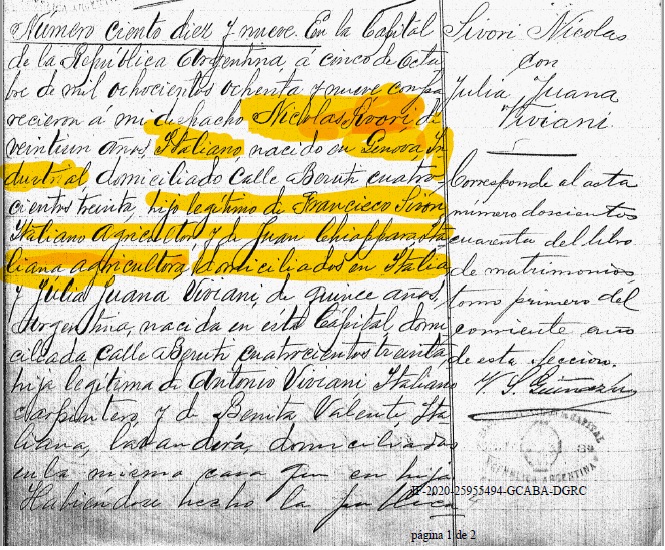 Número ciento diez y nueve. En la Capital
de la República Argentina, á cinco de Octu
bre de mil ochocientos ochenta y nueve compa
recieron á mi despacho Nicolas Sivori de
veintiun años, Italiano, nacido en Génova, In
dustrial domiciliado calle Beruti cuatro
cientos treinta, hijo legítimo de Francisco Sivori
Italiano Agricultor y de Juana Chiappara, Ita
liana agricultora, domiciliados en Italia
y Julia Juana Viviani, de quince años,
Argentina, nacida en esta Capital domi
ciliada calle Beruti cuatrocientos treinta,
hija legítima de Antonio Viviani Italiano
carpintero, y de Benita Valente Ita
liana, lavandera, domiciliados
en la misma casa que su hija
Habiéndose hecho la publica
Sivori Nicolas
con
Julia Juana
Viviani.
Corresponde al acta
número doscientos
cuarenta del libro
de matrimonios
tomo primero del
corriente año
de esta seccion.
CAPITAL
REPUBLICA ARGENTINA
IF-2020-25955494-GCABA-DGRC
página 1 de 2